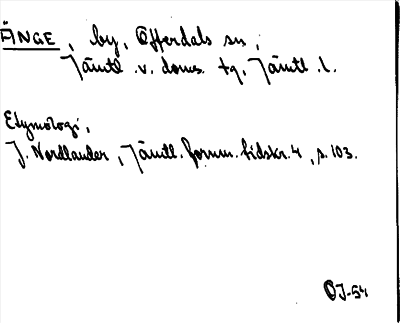 ÄNGE, by, Offerdals sn,
Jämtl. v. doms. tg, Jämtl. l.
Etymologi,
J. Nordlander, Jämtl. fornm. tidskr. 4, s. 103.
OJ-54